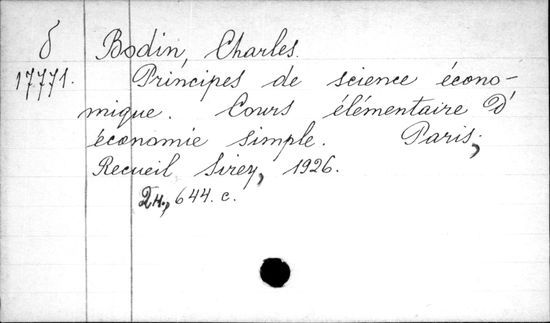 б Bodin, Charles.
17771. Principes de science écono-
mique. Cours élémentaire d'
économie simple. Paris,
Recueil Sirey, 1926.
644. c.